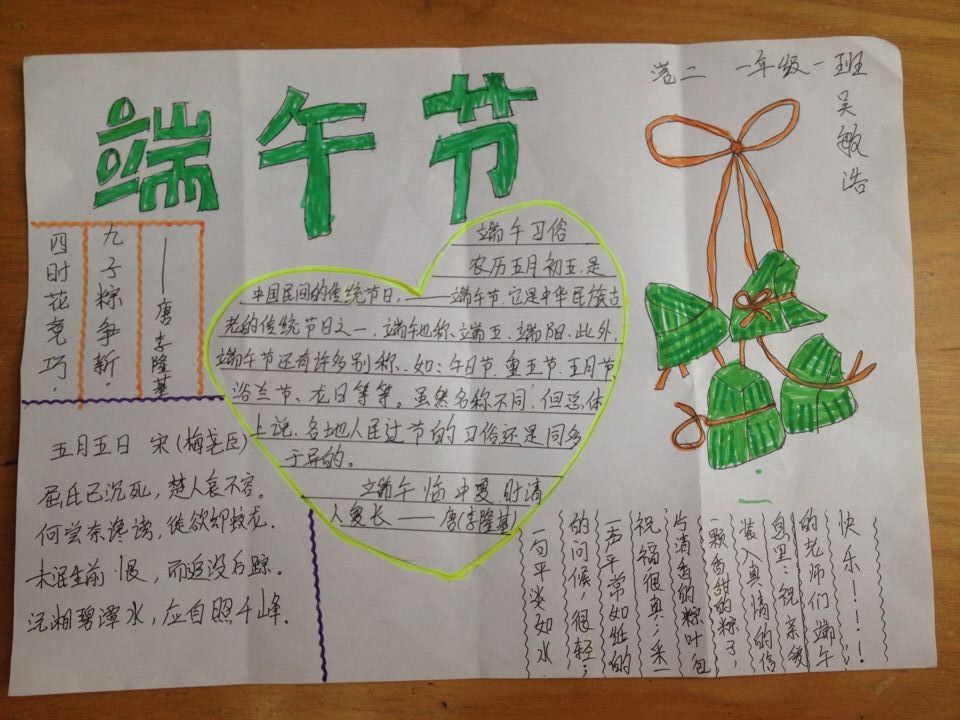 端午节
二 一年级一班
吴敏浩
四时花竞巧.
九子粽争新.
——唐李隆基
端午习俗
农历五月初五,是
中国民间的传统节日,——端午节.它是中华民族古
老的传统节日之一,端午也称端五、端阳.此外,
端午节还有许多别称、如:午日节.重五节.五月节
浴兰节、龙日等等。虽然名称不同,但总体
上说,各地人民过节的习俗还是同多
于异的。
端午临中夏.时清
人复长——唐(李隆基)
五月五日 宋(梅尧臣)
屈氏已沉死,楚人哀不容。
何尝奈谗谤,徒欲却蛟龙.
未泯生前恨,而追没后踪.
沅湘碧潭水,应自照千峰.
一句平淡如水
的问候,很轻;
一声平常如纸的
祝福很真;采一
片清香的粽叶包
一颗香甜的粽子,
装入真情的信
息里:祝亲爱
的老师们端午
快乐!!!!